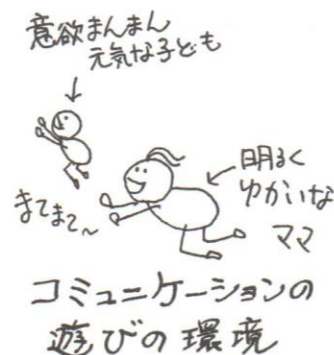 意欲まんまん
元気な子ども
まてまて~
明るく
ゆかいな
ママ
コミュニケーションの
遊びの環境